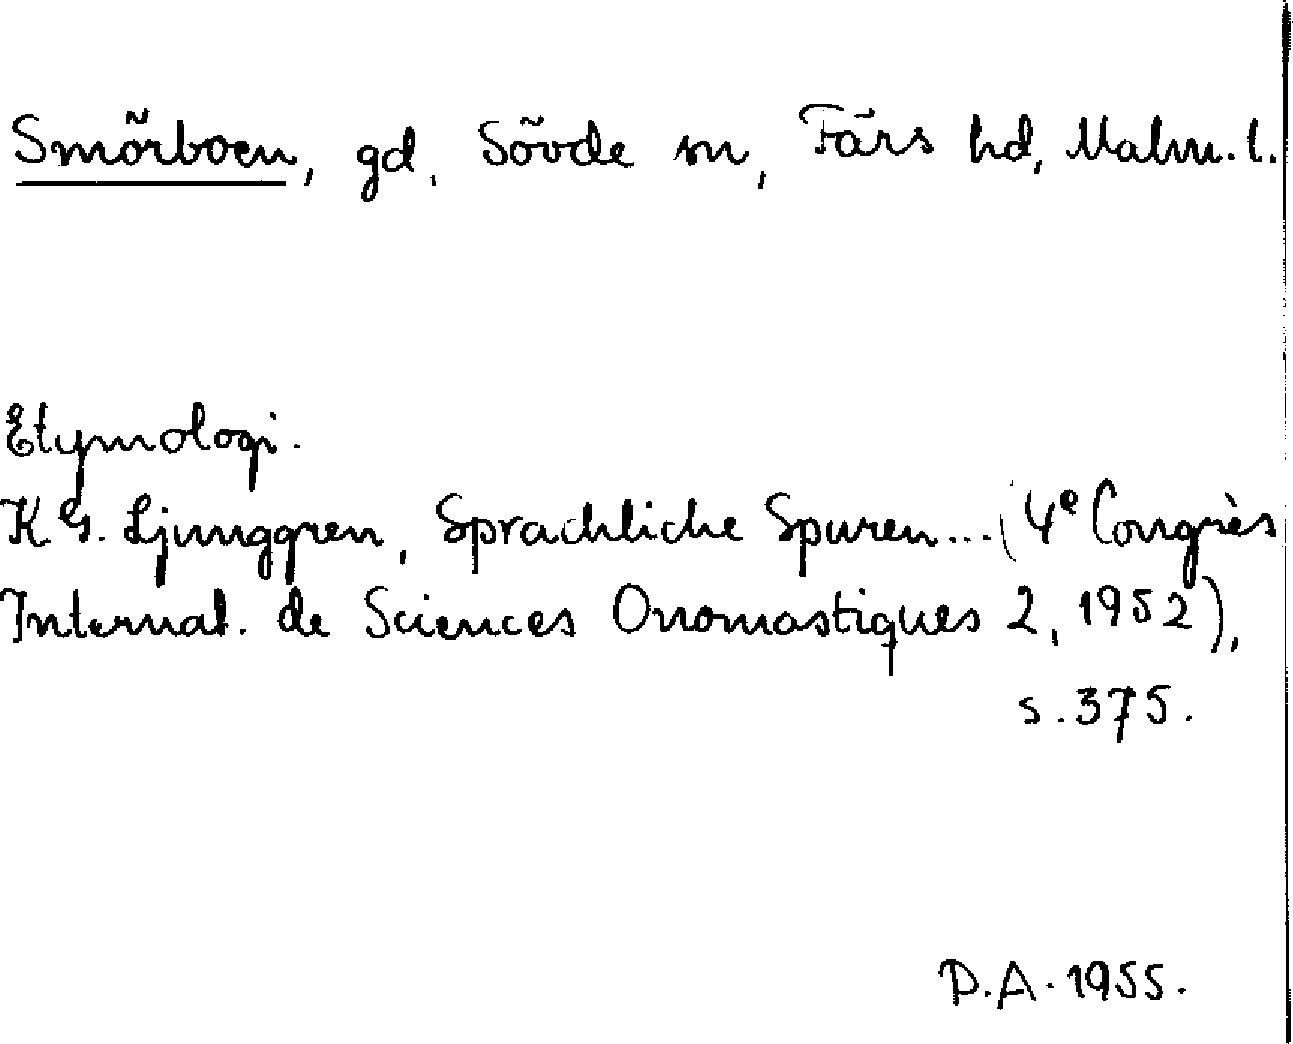 Smörboen, gd, Sövde sn, Färs hd, Malm. l.
Etymologi.
K G. Ljunggren, Sprachliche Spuren... (4e Congrès
Internat. de Sciences Onomastiques 2, 1952),
s. 375.
D.A. 1955.